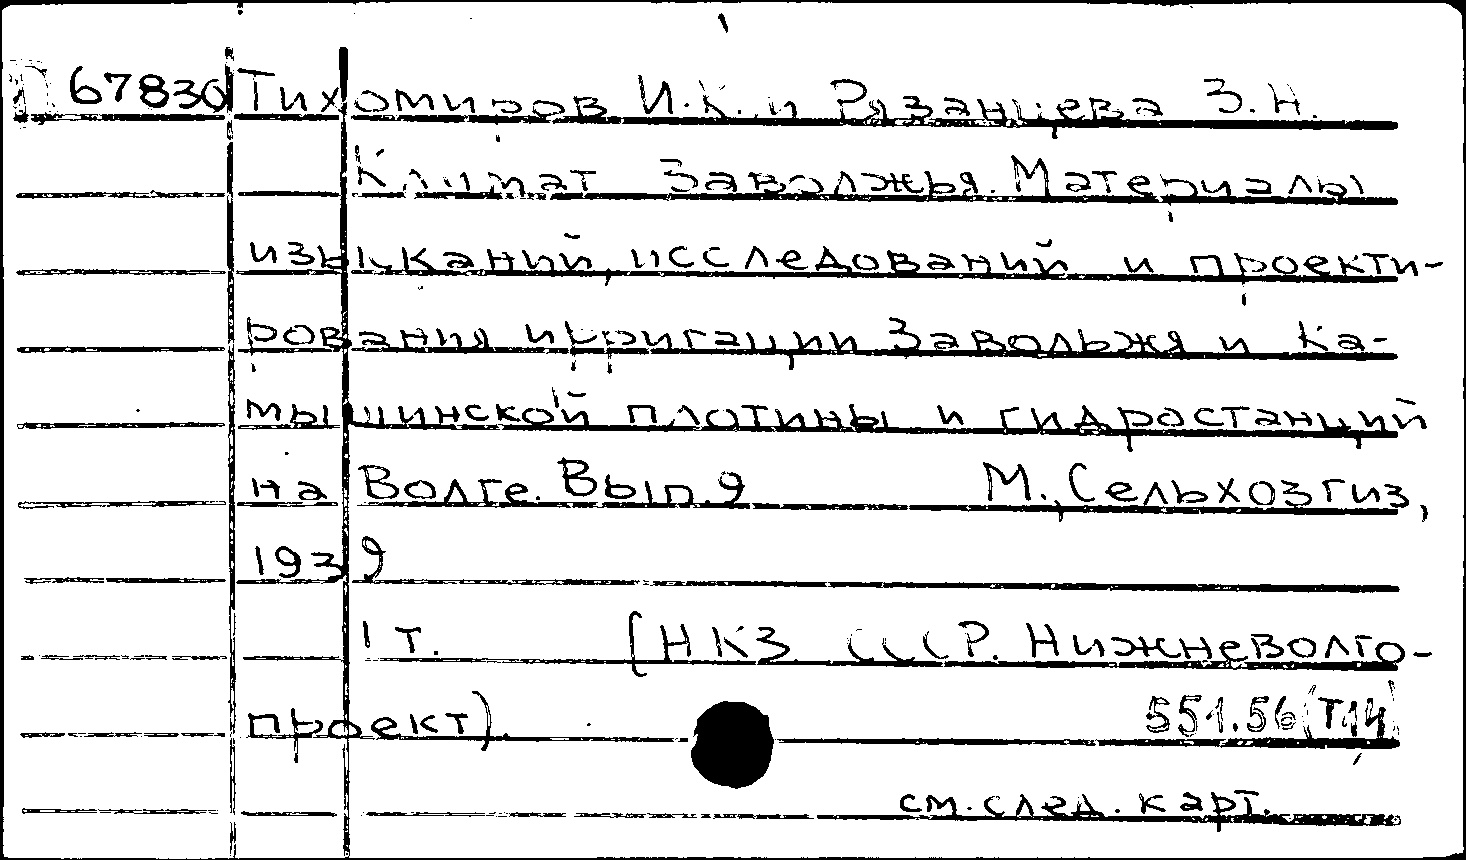 П 67830 Тихомиров И.К. и Рязанцева З.Н.
Климат Заволжья. Материалы
изысканий, исследований и проекти-
рования ирригации Завольжя и Ка-
мышинской плотины и гидростанций
на Волге. Вып. 9 М., Сельхозгиз,
1939
1 т. (НКЗ СССР. Нижневолго-
проект).
551.56(Т14)
см. след. карт.